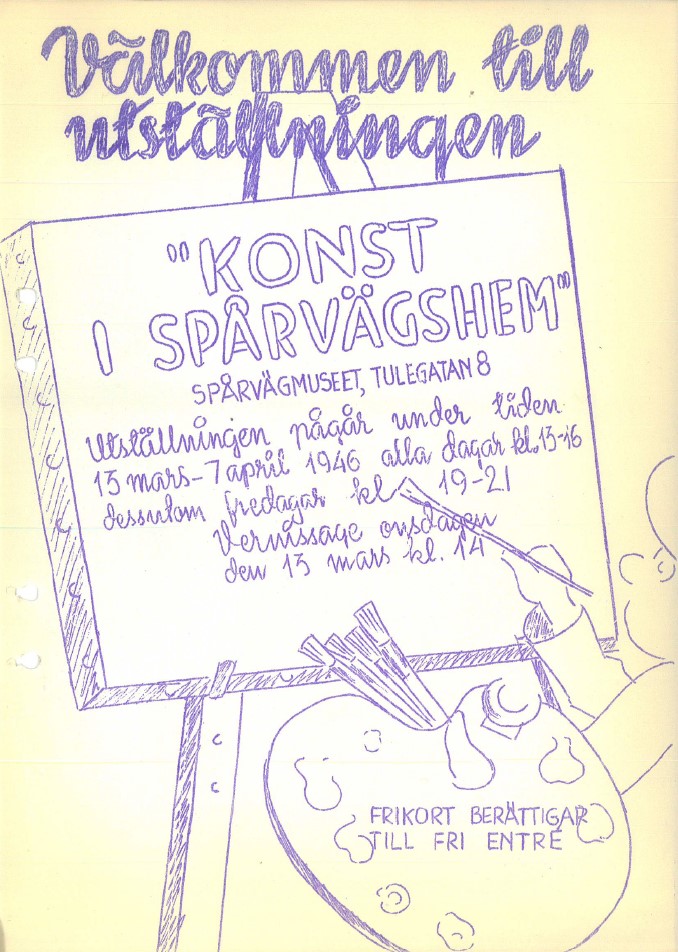 Välkommen till
utställningen
"KONST
I SPÅRVÄGSHEM"
SPÅRVÄGMUSEET, TULEGATAN 8
Utställningen pågår under tiden
13 mars-7 april 1946 alla dagar kl. 13-16
dessutom fredagar kl 19-21
Vernissage onsdagen
den 13 mars kl. 14
FRIKORT BERÄTTIGAR
TILL FRI ENTRÉ